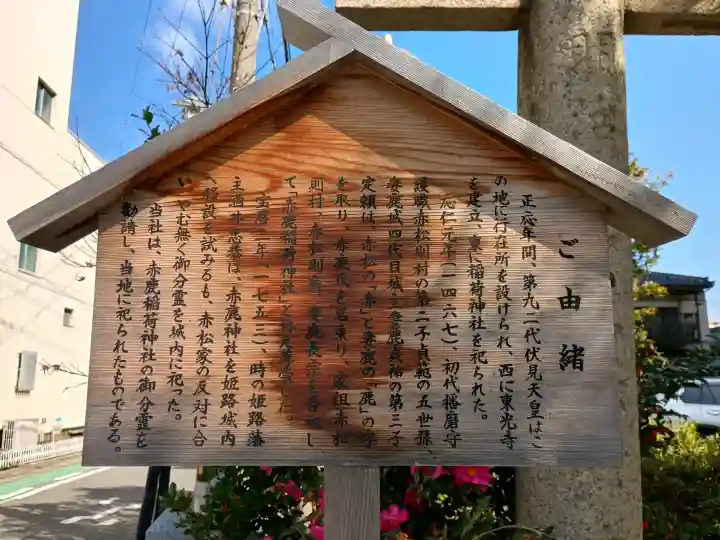 ご由緒
正応年間、第九二代伏見天皇はこ
の地に行在所を設けられ、西に東光寺
を建立、東に稲荷神社を祀られた。
応仁元年(一四六七)、初代播磨守
護職赤松則村の第二子貞範の五世孫、
妻鹿城四代目城主妻鹿貞祐の第三子
定頼は、赤松の「赤」と妻鹿の「鹿」の字
を取り、赤鹿氏を名乗り、家祖赤松
則村、赤松則祐、妻鹿長宗を合祀し
て「赤鹿稲荷神社」と
宝暦二年(一七五二)、時の姫路藩
主酒井忠恭は、赤鹿神社を姫路城内
へ移設を試みるも、赤松家の反対に合
い、やむ無く御分霊を城内に祀った。
当社は、赤鹿稲荷神社の御分霊を
勧請し、当地に祀られたものである。